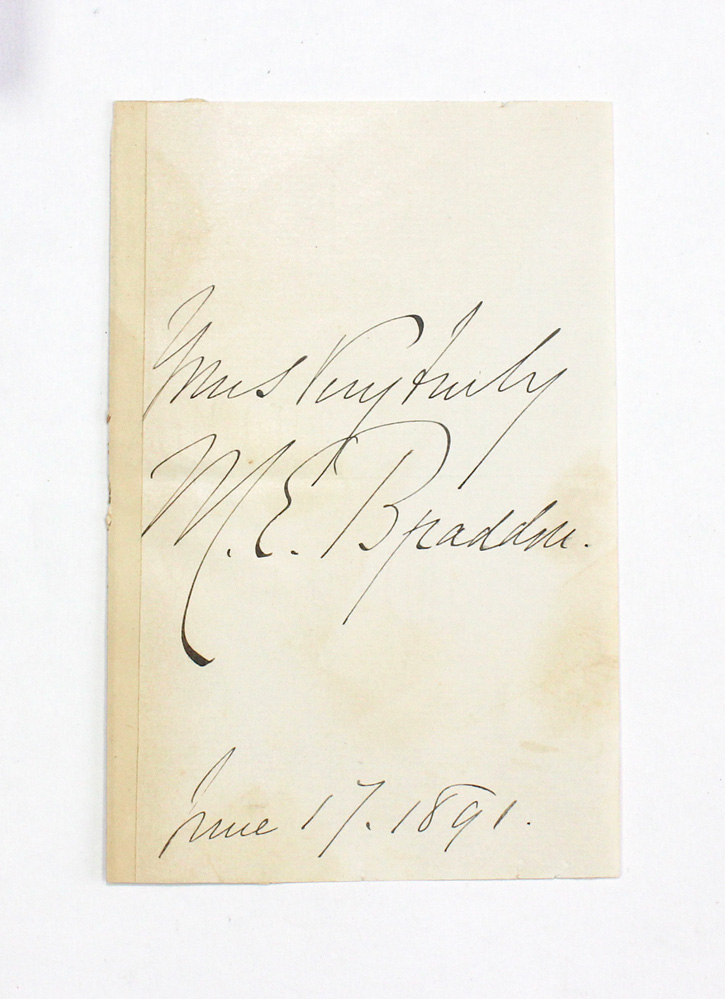 Yours Very truly
M. E. Braddon.
June 17. 1891.